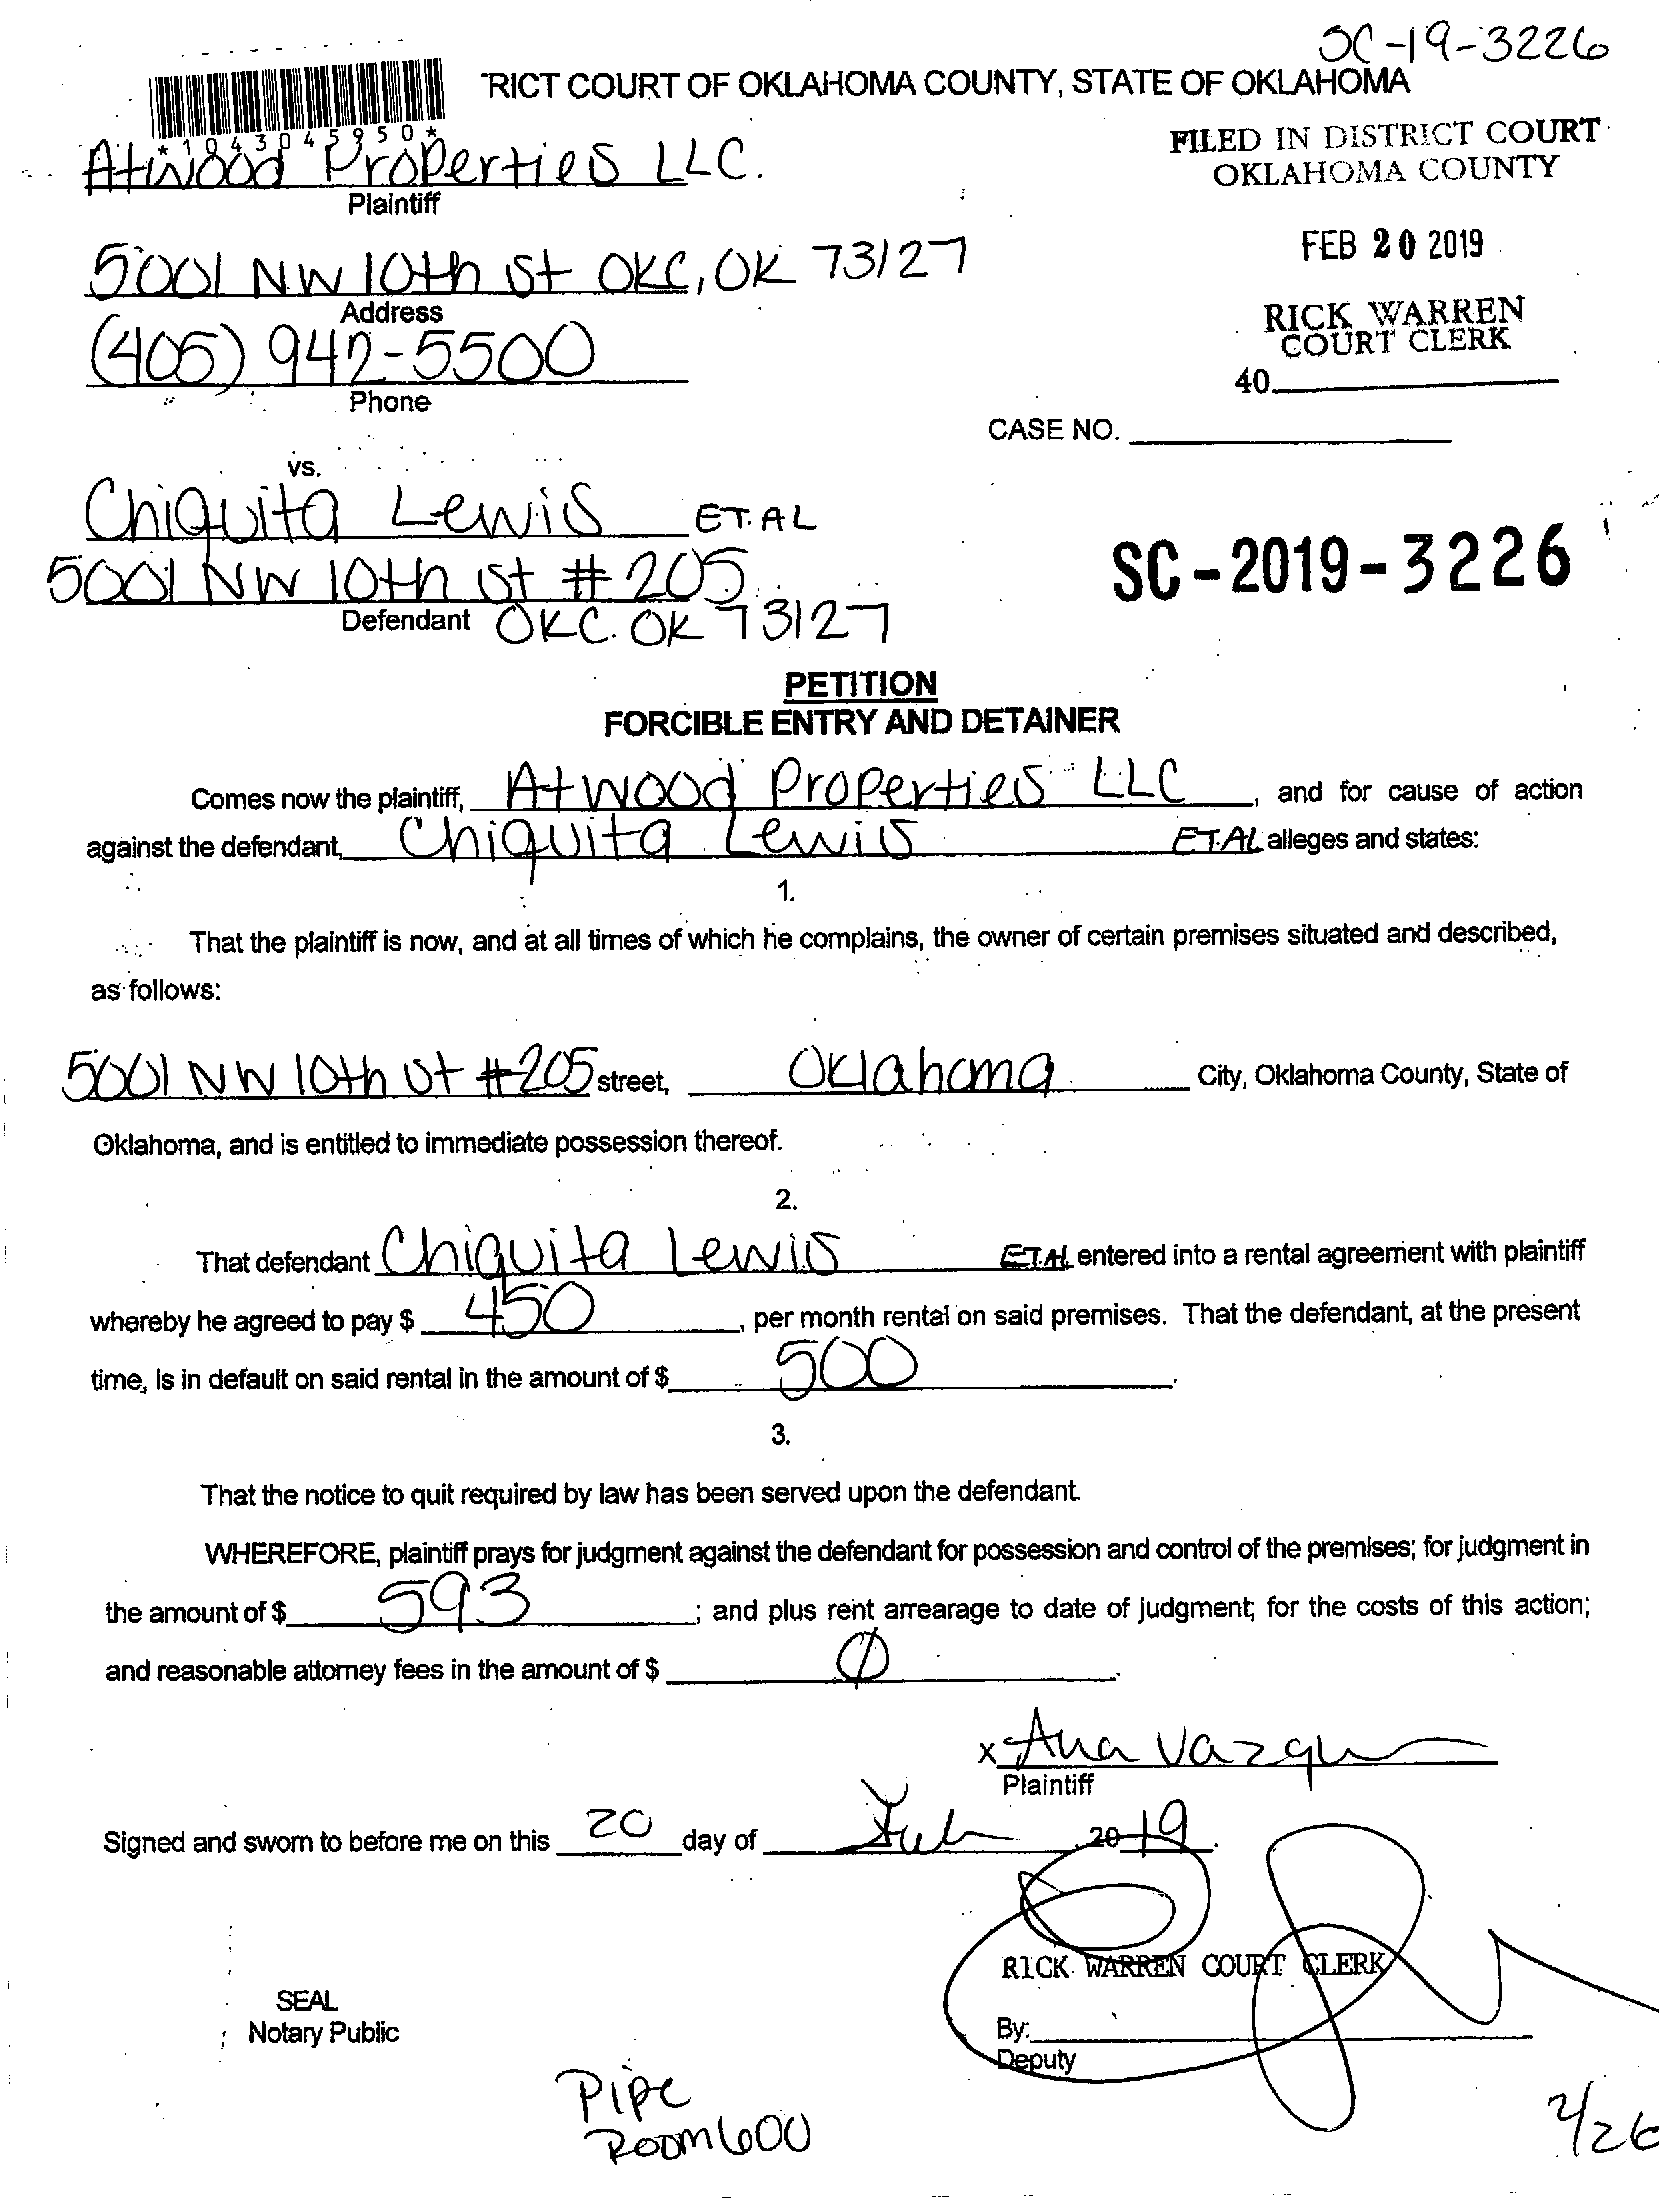 SC-19-3226
TRICT COURT OF OKLAHOMA COUNTY, STATE OF OKLAHOMA
*1043045950*
Atwood Properties LLC.
Plaintiff
FILED IN DISTRICT COURT
OKLAHOMA COUNTY
5001 NW 10th St OKC, OK 73127
Address
FEB 20 2019
(405) 942-5500
Phone
RICK WARREN
COURT CLERK
40
CASE NO.
vs.
Chiquita Lewis ET.AL
5001 NW 10th St # 205
Defendant OKC. OK 73127
SC-2019-3226
PETITION
FORCIBLE ENTRY AND DETAINER
Comes now the plaintiff, Atwood Properties LLC, and for cause of action
against the defendant, Chiquita Lewis ET.AL alleges and states:
1.
That the plaintiff is now, and at all times of which he complains, the owner of certain premises situated and described,
as follows:
5001 NW 10th St #205 street, Oklahoma City, Oklahoma County, State of
Oklahoma, and is entitled to immediate possession thereof.
2.
That defendant Chiquita Lewis ET.AL entered into a rental agreement with plaintiff
whereby he agreed to pay $ 450, per month rental on said premises. That the defendant, at the present
time, is in default on said rental in the amount of $ 500.
3.
That the notice to quit required by law has been served upon the defendant.
WHEREFORE, plaintiff prays for judgment against the defendant for possession and control of the premises; for judgment in
the amount of $ 593; and plus rent arrearage to date of judgment; for the costs of this action;
and reasonable attorney fees in the amount of $ 0.
x Ana Vazqu
Plaintiff
Signed and sworn to before me on this 20 day of Feb, 2019.
RICK WARREN COURT CLERK
SEAL
Notary Public
By:
Deputy
Pipe
Room 600
2/26